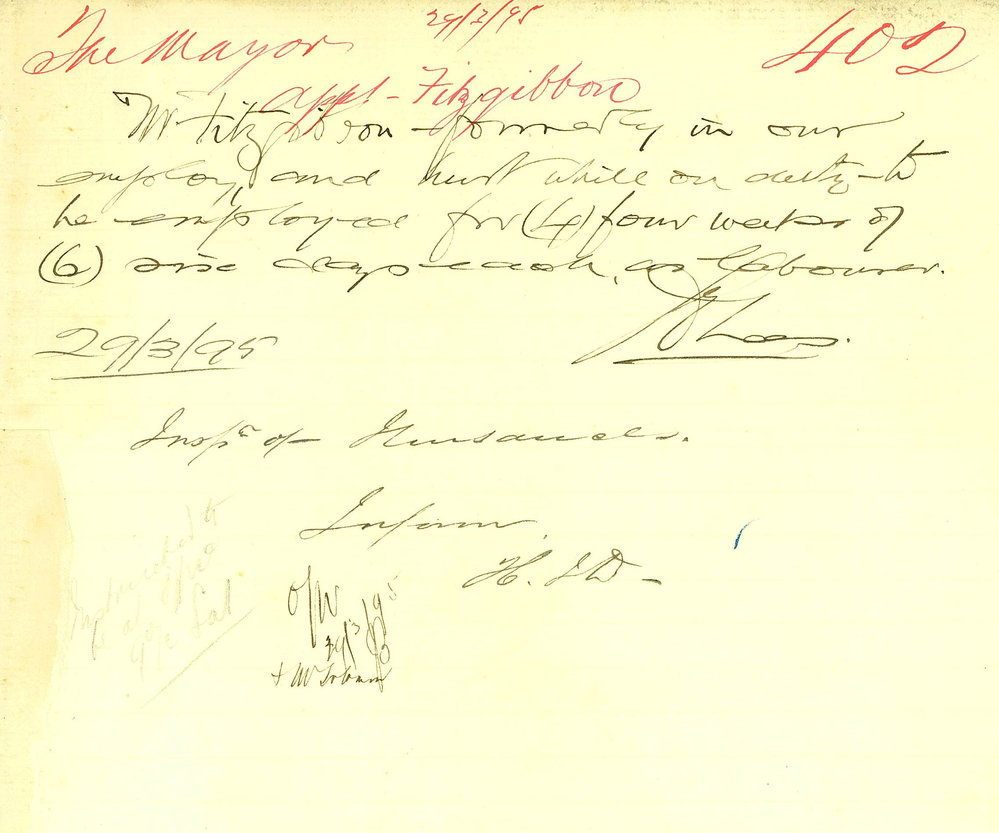 29/3/95
The Mayor 402
appt - Fitzgibbon
Mr Fitzgibbon formerly in our
employ, and hurt while on duty - to
be employed for (4) four weeks of
(6) six days each, as labourer.
29/3/95
Inspr of Nuisances.
Inform
H.
29/3/95
Instructed to
at
Sat